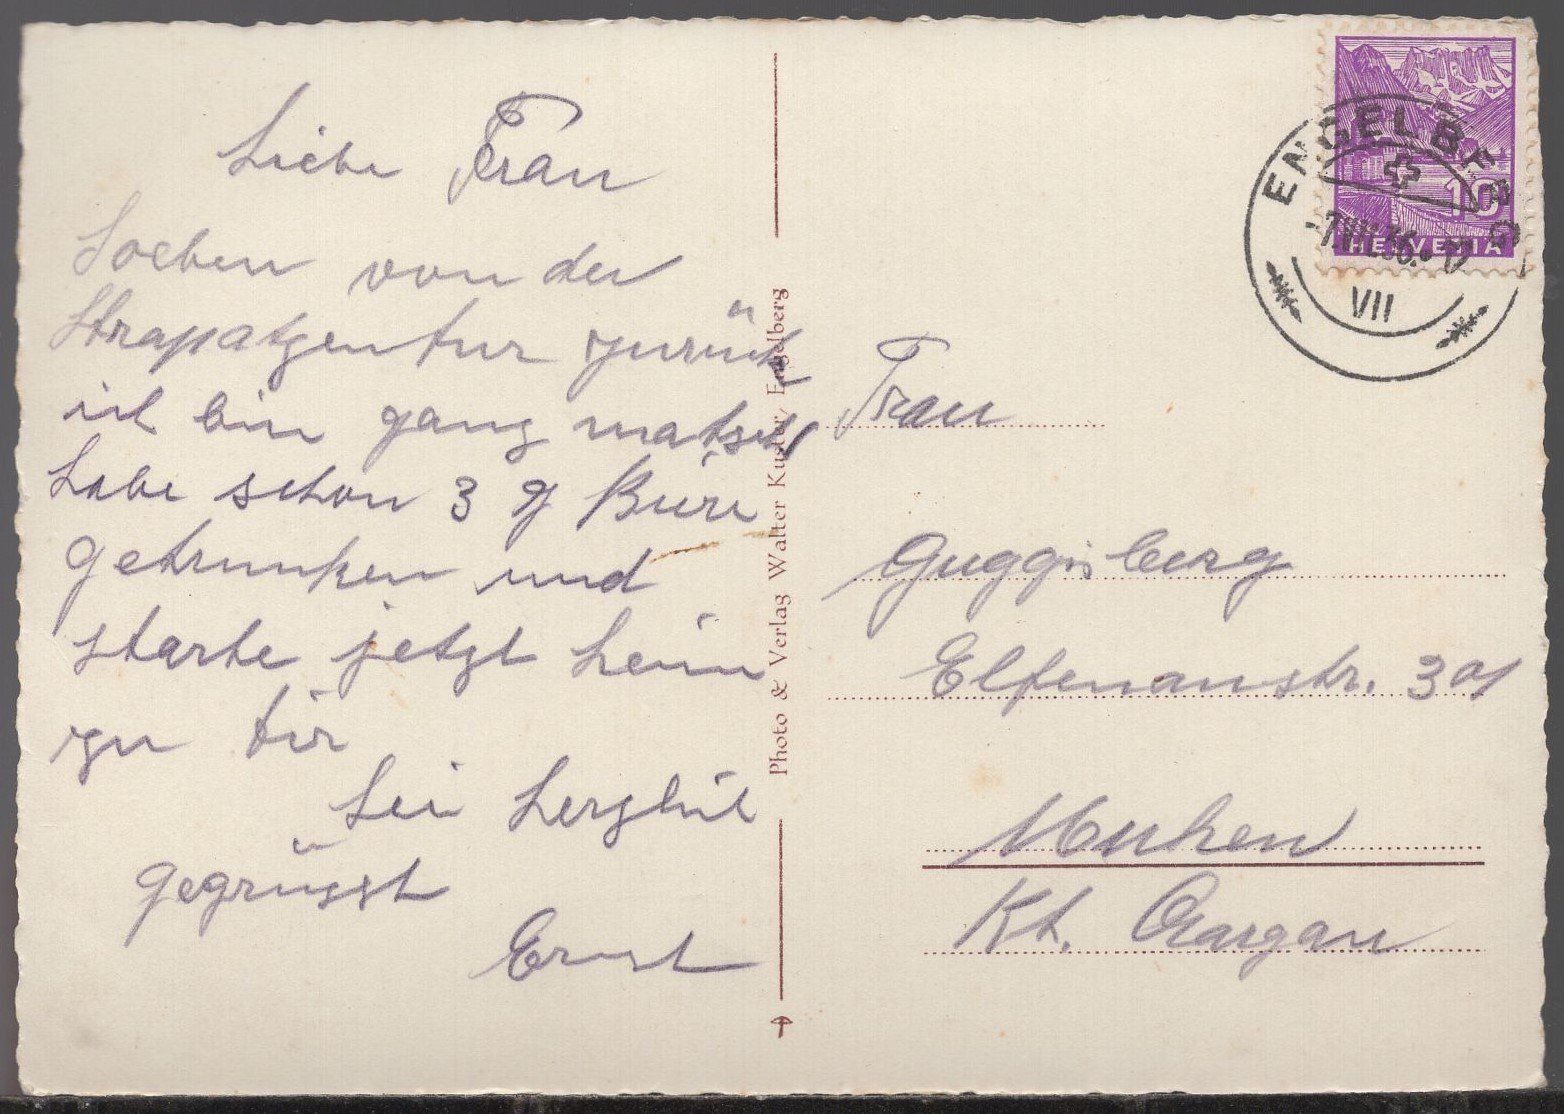 Liebe Frau
Soeben von der
Strapatzentur zurück
ich bin ganz matsch
habe schon 3 g Biere
getrunken und
starte jetzt heim
zu tir
Sei herzlich
gegrüsst
Ernst
Photo & Verlag Walter Kuster, Engelberg
HELVETIA
10
ENGELBERG
VII
Frau
Guggisberg
Elfenaustr.
Muhen
Kt. Aargau